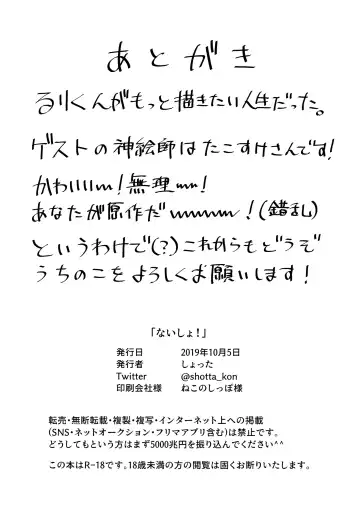 あとがき
るりくんがもっと描きたい人生だった。
ゲストの神絵師はたこすけさんです!
かわいいいm!無理mm!
あなたが原作だwwwww!(錯乱)
というわけで(?)これからもどうぞ
うちのこをよろしくお願いします!
「ないしょ!」
発行日 2019年10月5日
発行者 しょった
Twitter @shotta_kon
印刷会社様 ねこのしっぽ様
転売・無断転載・複製・複写・インターネット上への掲載
(SNS・ネットオークション・フリマアプリ含む)は禁止です。
どうしてもという方はまず5000兆円を振り込んでください^^
この本はR-18です。18歳未満の方の閲覧は固くお断りいたします。